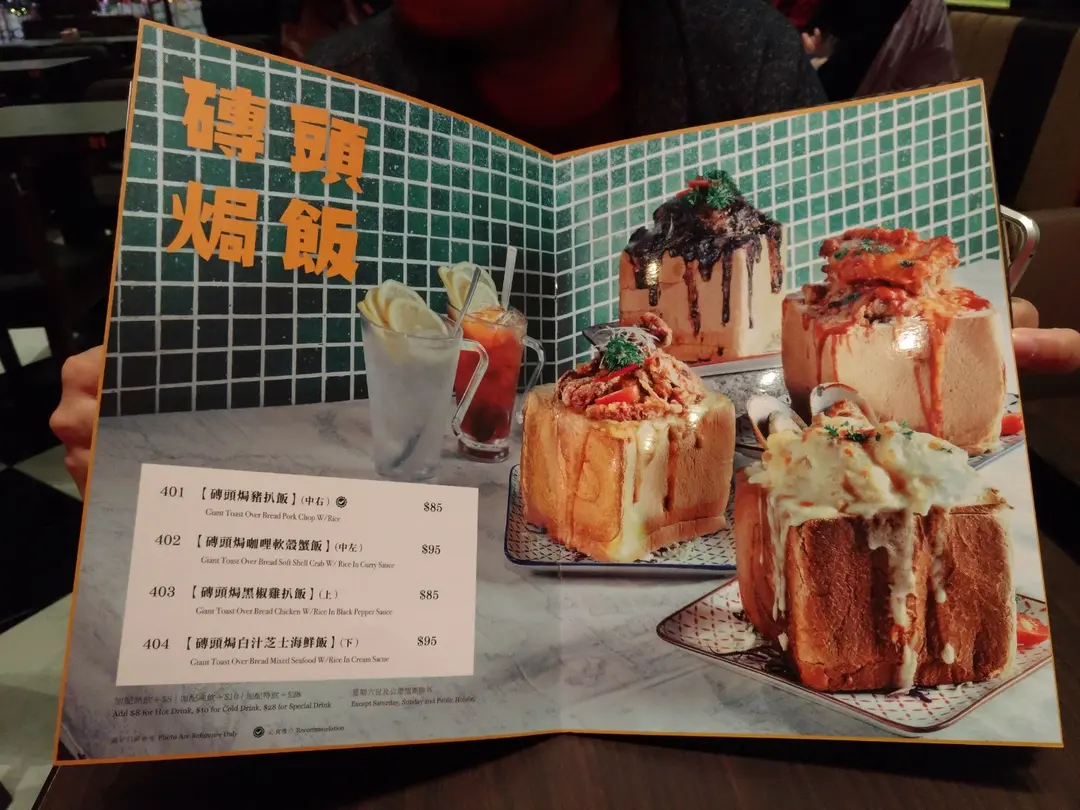 磚頭
焗飯
401 【磚頭焗豬扒飯】(中右) $85
Giant Toast Over Bread Pork Chop W/Rice
402 【磚頭焗咖喱軟殼蟹飯】(中左) $95
Giant Toast Over Bread Soft Shell Crab W/ Rice In Curry Sauce
403 【磚頭焗黑椒雞扒飯】(上) $85
Giant Toast Over Bread Chicken W/Rice In Black Pepper Sauce
404 【磚頭焗白汁芝士海鮮飯】(下) $95
Giant Toast Over Bread Mixed Seafood W/Rice In Cream Sacue
星期六日及公眾假期除外
Add $8 for Hot Drink, $10 for Cold Drink, $28 for Special Drink
Except Saturday, Sunday and Public Holiday
Photo Are Reference Only
Recommendation